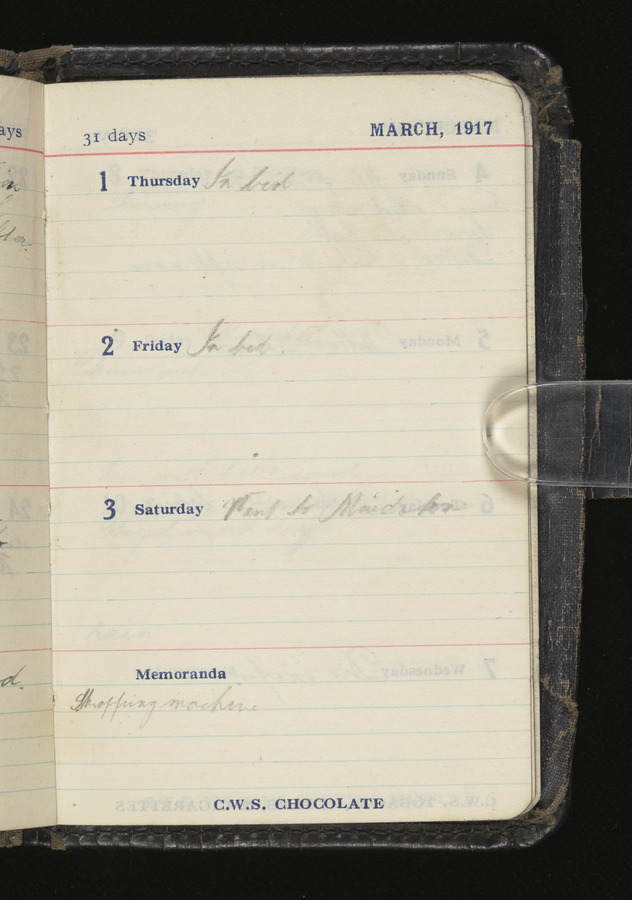 31 days MARCH, 1917
1 Thursday In bed
2 Friday In bed.
3 Saturday Went to Maidstone
Memoranda
machine
C.W.S. CHOCOLATE